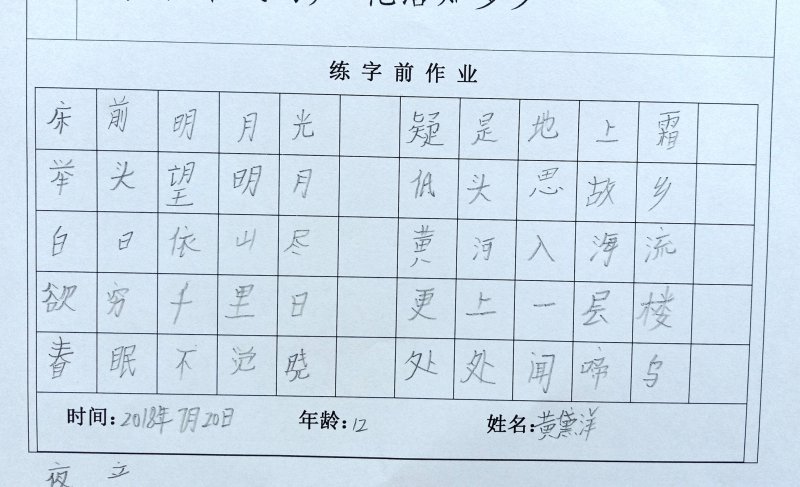 花落知多少
练字前作业
床前明月光 疑是地上霜
举头望明月 低头思故乡
白日依山尽 黄河入海流
欲穷千里日 更上一层楼
春眠不觉晓 处处闻啼鸟
时间:2018年7月20日 年龄:12 姓名:黄黛洋
夜